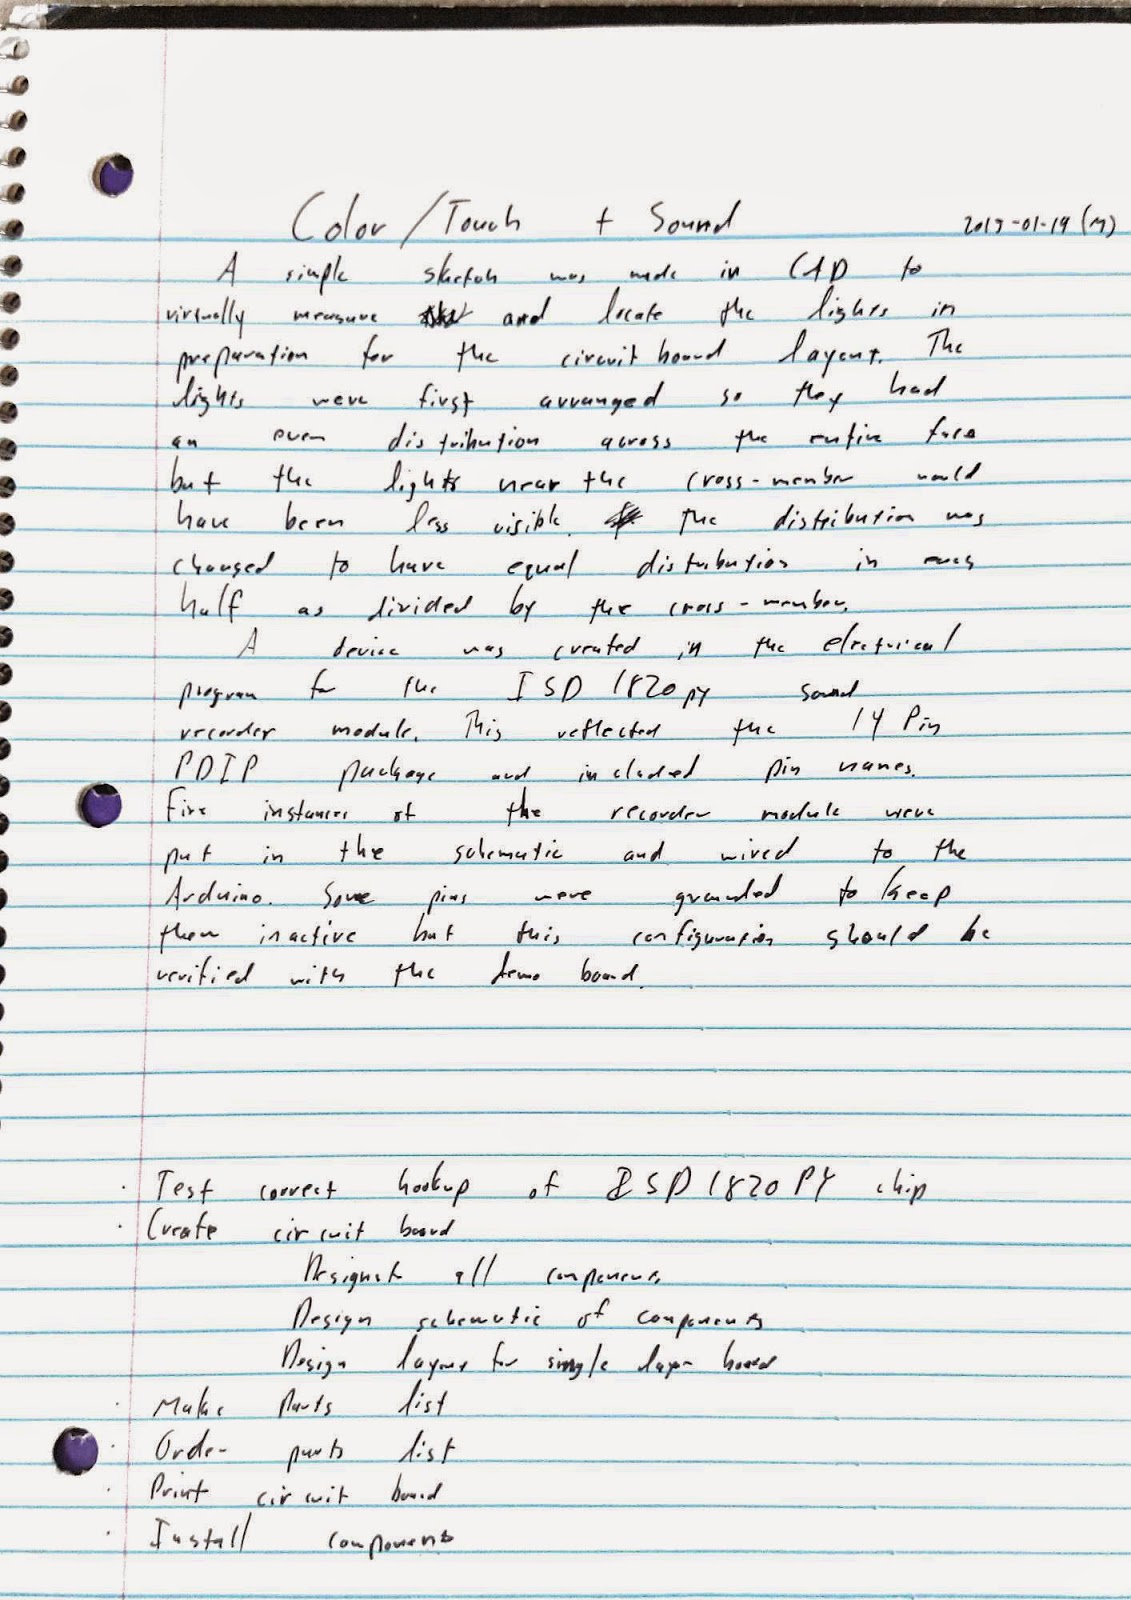 Color/Touch + Sound
2015-01-19 (M)
A simple sketch was made in CAD to
virtually measure and locate the lights in
preparation for the circuit board layout. The
lights were first arranged so they had
an even distribution across the entire face
but the lights near the cross-member would
have been less visible. The distribution was
changed to have equal distribution in each
half as divided by the cross-member.
A device was created in the electrical
program for the ISD 1820 py sound
recorder module. This reflected the 14 Pin
PDIP package and included pin names.
Five instances of the recorder module were
put in the schematic and wired to the
Arduino. Some pins were grounded to keep
them inactive but this configuration should be
verified with the demo board.
· Test correct hookup of ISD1820PY chip
· Create circuit board
all components
Design schematic of components
Design layout for single layer board
· Make parts list
· Order parts list
· Print circuit board
· Install components